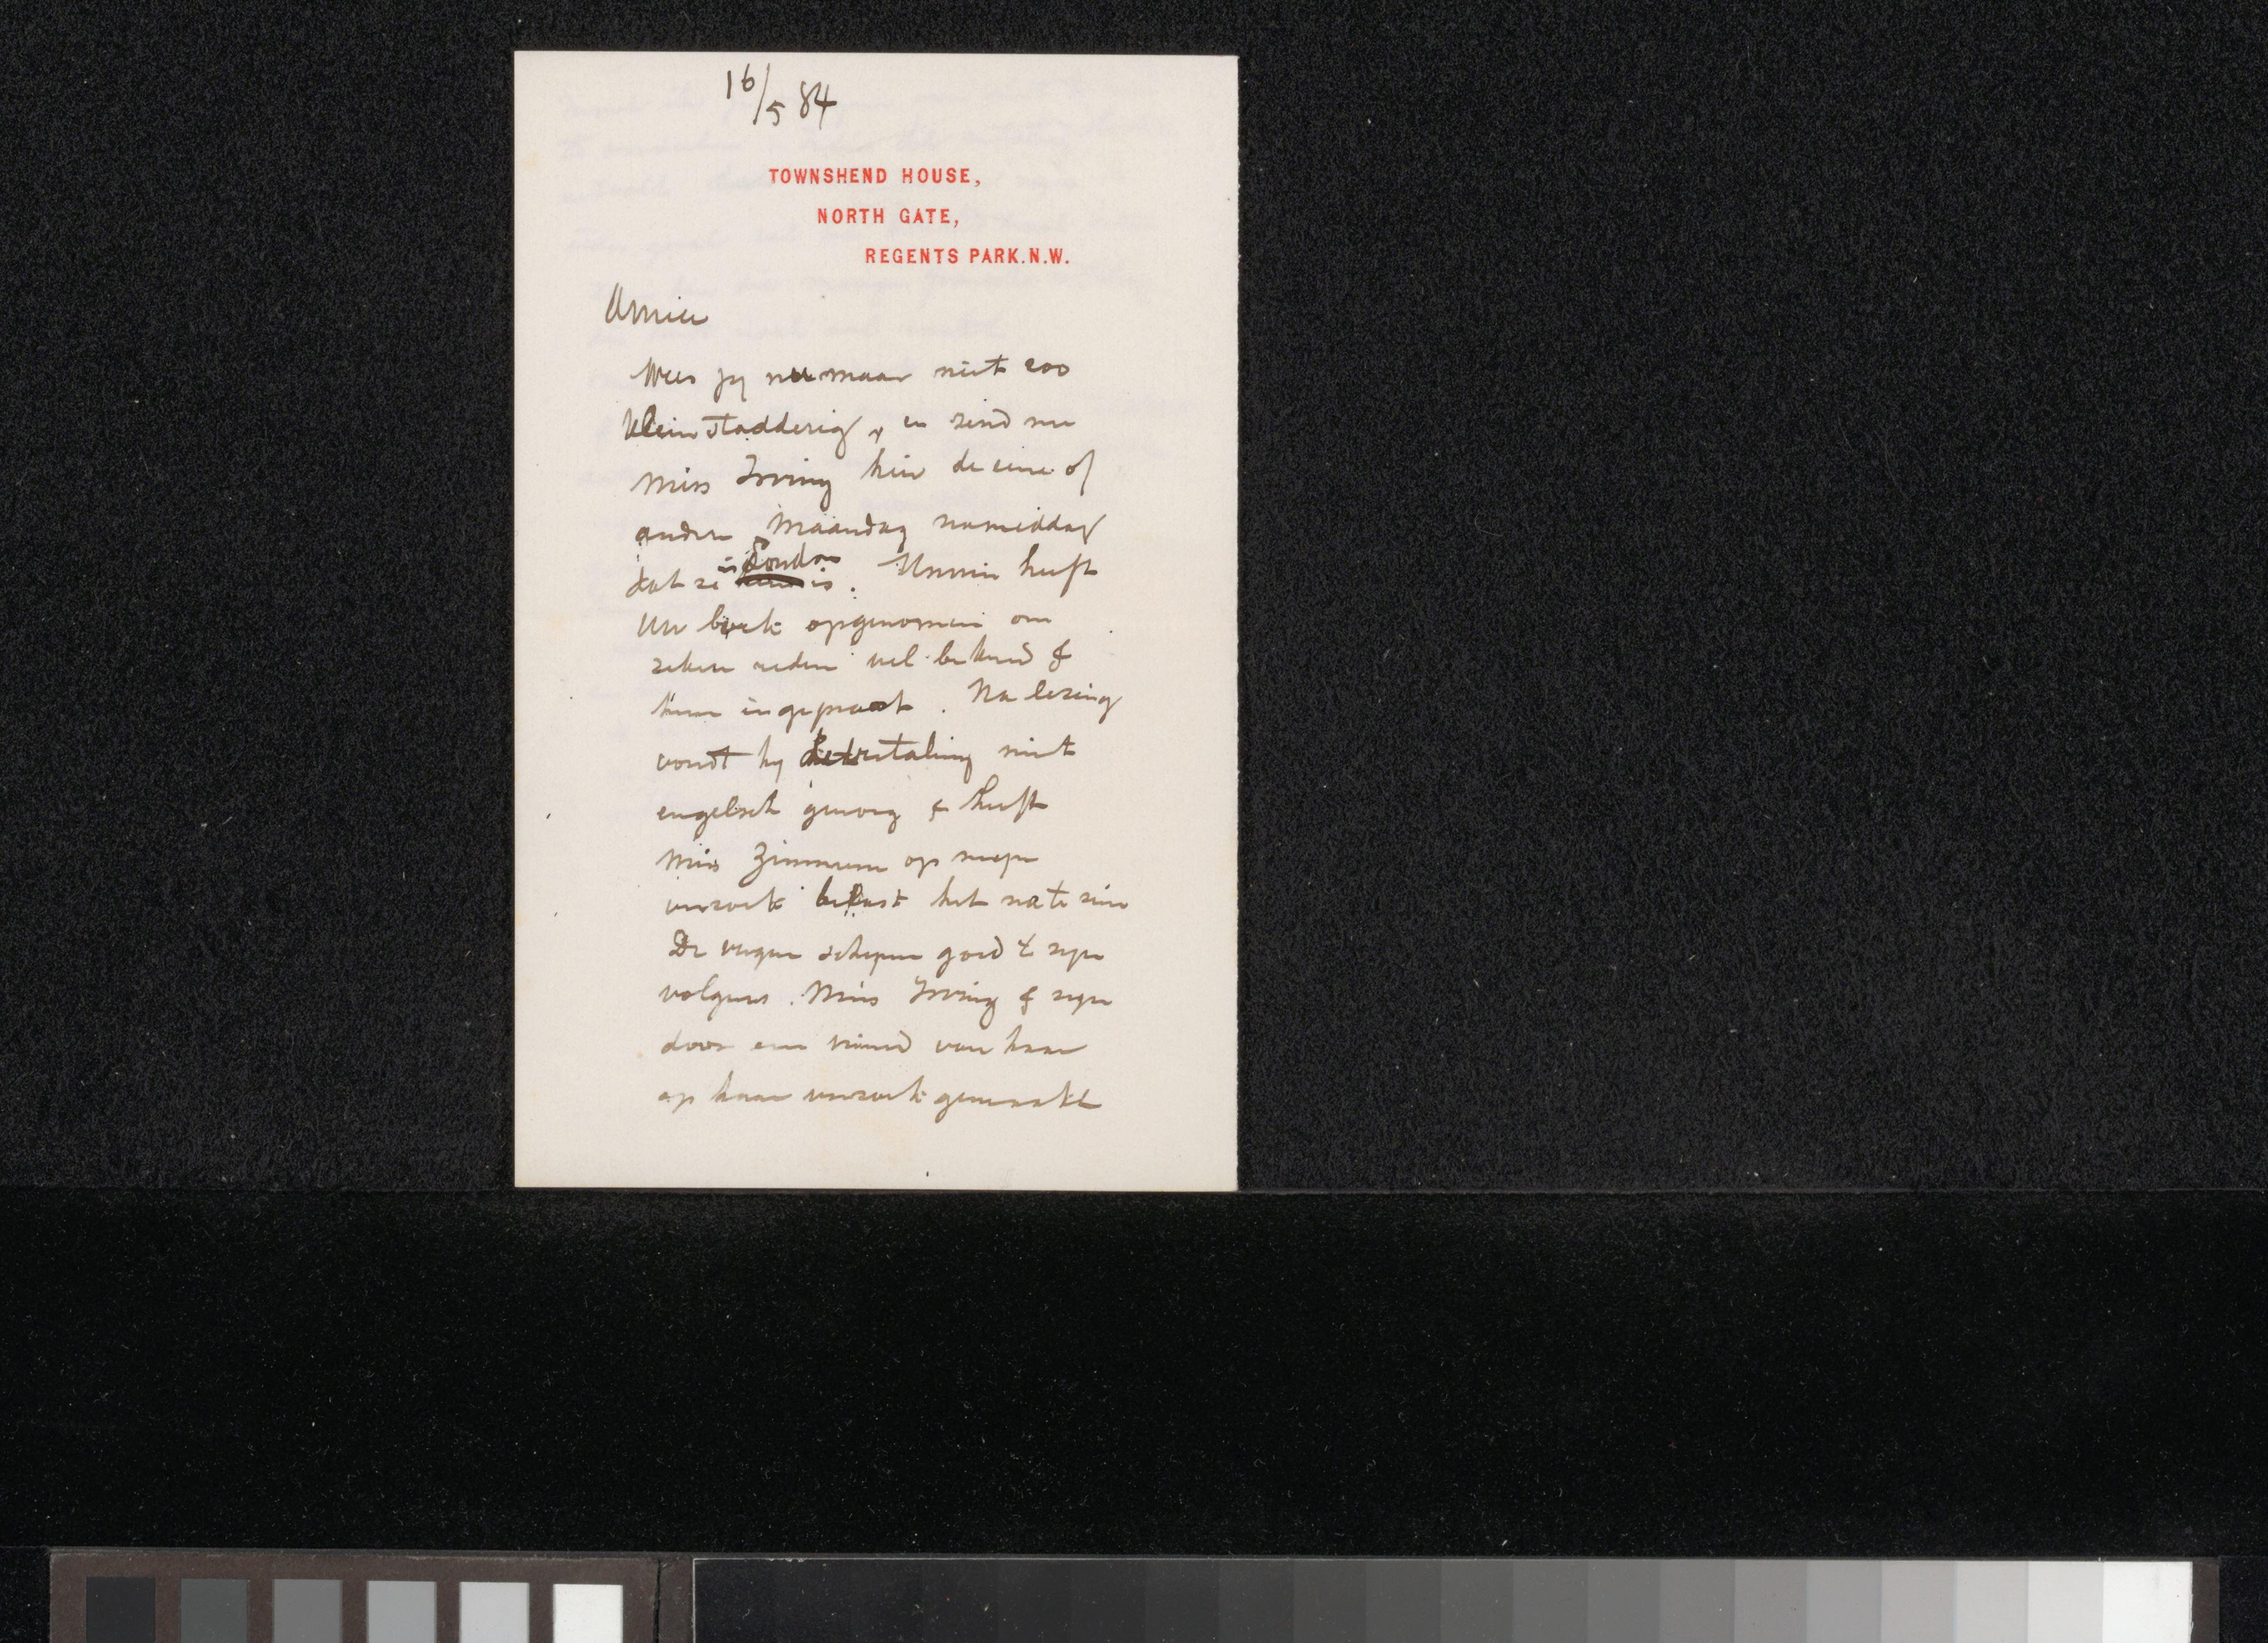 16/5 84
TOWNSHEND HOUSE,
NORTH GATE,
REGENTS PARK.N.W.
Amice
Wees jy nu maar niet zoo
klein stadderig, en zend me
Miss Irving hier de eene of
andere Maandag namiddag
dat ze in London is. Unwin heeft
Uw boek opgenomen om
zekere reden wel bekend &
hem ingepraat. Na lezing
vondt hy de vertaling niet
engelsch genoeg & heeft
Miss Zimmern op myn
verzoek belast het na te zien
De verzen schynen goed & zyn
volgens Miss Irving & zyn
door een vriend van haar
op haar verzoek gemaakt